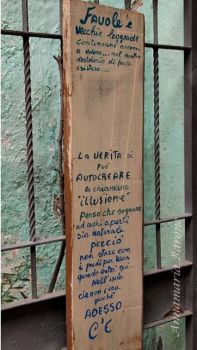 Favole e
vecchie leggende
continuano ancora
a vivere... nel nostro
desiderio di farle
esistere....
LA VERITÀ SI
PUÒ
AUTOCREARE
& chiamiamo
"ILLUSIONE"
Penso che sognare
ad occhi aperti
sia naturale
perciò
non stare con
i piedi per terra
quando entri qui..
Nell'isola
che non c'era
purché
ADESSO
C'È
Annamaria